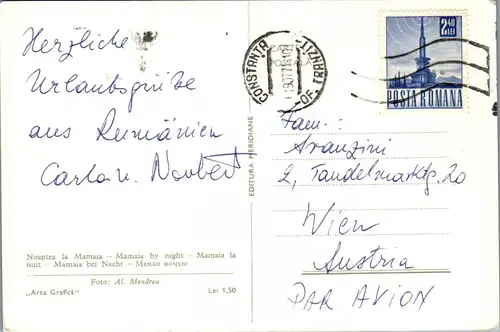 Herzliche
Urlaubsgrüße
aus Rumänien
Carla u. Norbert
Noaptea la Mamaia – Mamaia by night – Mamaia la
nuit – Mamaia bei Nacht – Мамая ночью
Foto: Al. Mendrea
„Arta Grafică"
Lei 1,50
EDITURA MERIDIANE
CONSTANTA
OF.
2,40
LEI
POSTA ROMANA
Fam.:
Aranzini
2, Tandelmarktg. 20
Wien
Austria
PAR AVION